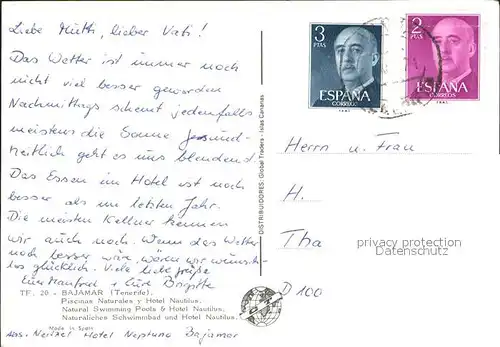 Liebe Mutti, lieber Vati!
Das Wetter ist immer noch
nicht viel besser geworden
Nachmittags scheint jedenfalls
meistens die Sonne. Gesund-
heitlich geht es uns blendend.
Das Essen im Hotel ist noch
besser als im letzten Jahr.
Die meisten Kellner kennen
wir auch noch. Wenn das Wetter
noch besser wäre, wären wir wunsch-
los glücklich. Viele liebe Grüße
Eure Manfred + Eure Brigitte
TF. 20 - BAJAMAR (Tenerife).
Piscinas Naturales y Hotel Nautilus.
Natural Swimming Pools & Hotel Nautilus.
Natürliches Schwimmbad und Hotel Nautilus.
Made in Spain
Abs. Hotel Neptuno Bajamar
DISTRIBUIDORES: Global Traders - Islas Canarias
3
PTAS
ESPAÑA
CORREOS
2
PTAS
ESPAÑA
CORREOS
Herrn u. Frau
H.
Tha
privacy protection
Datenschutz
D 100